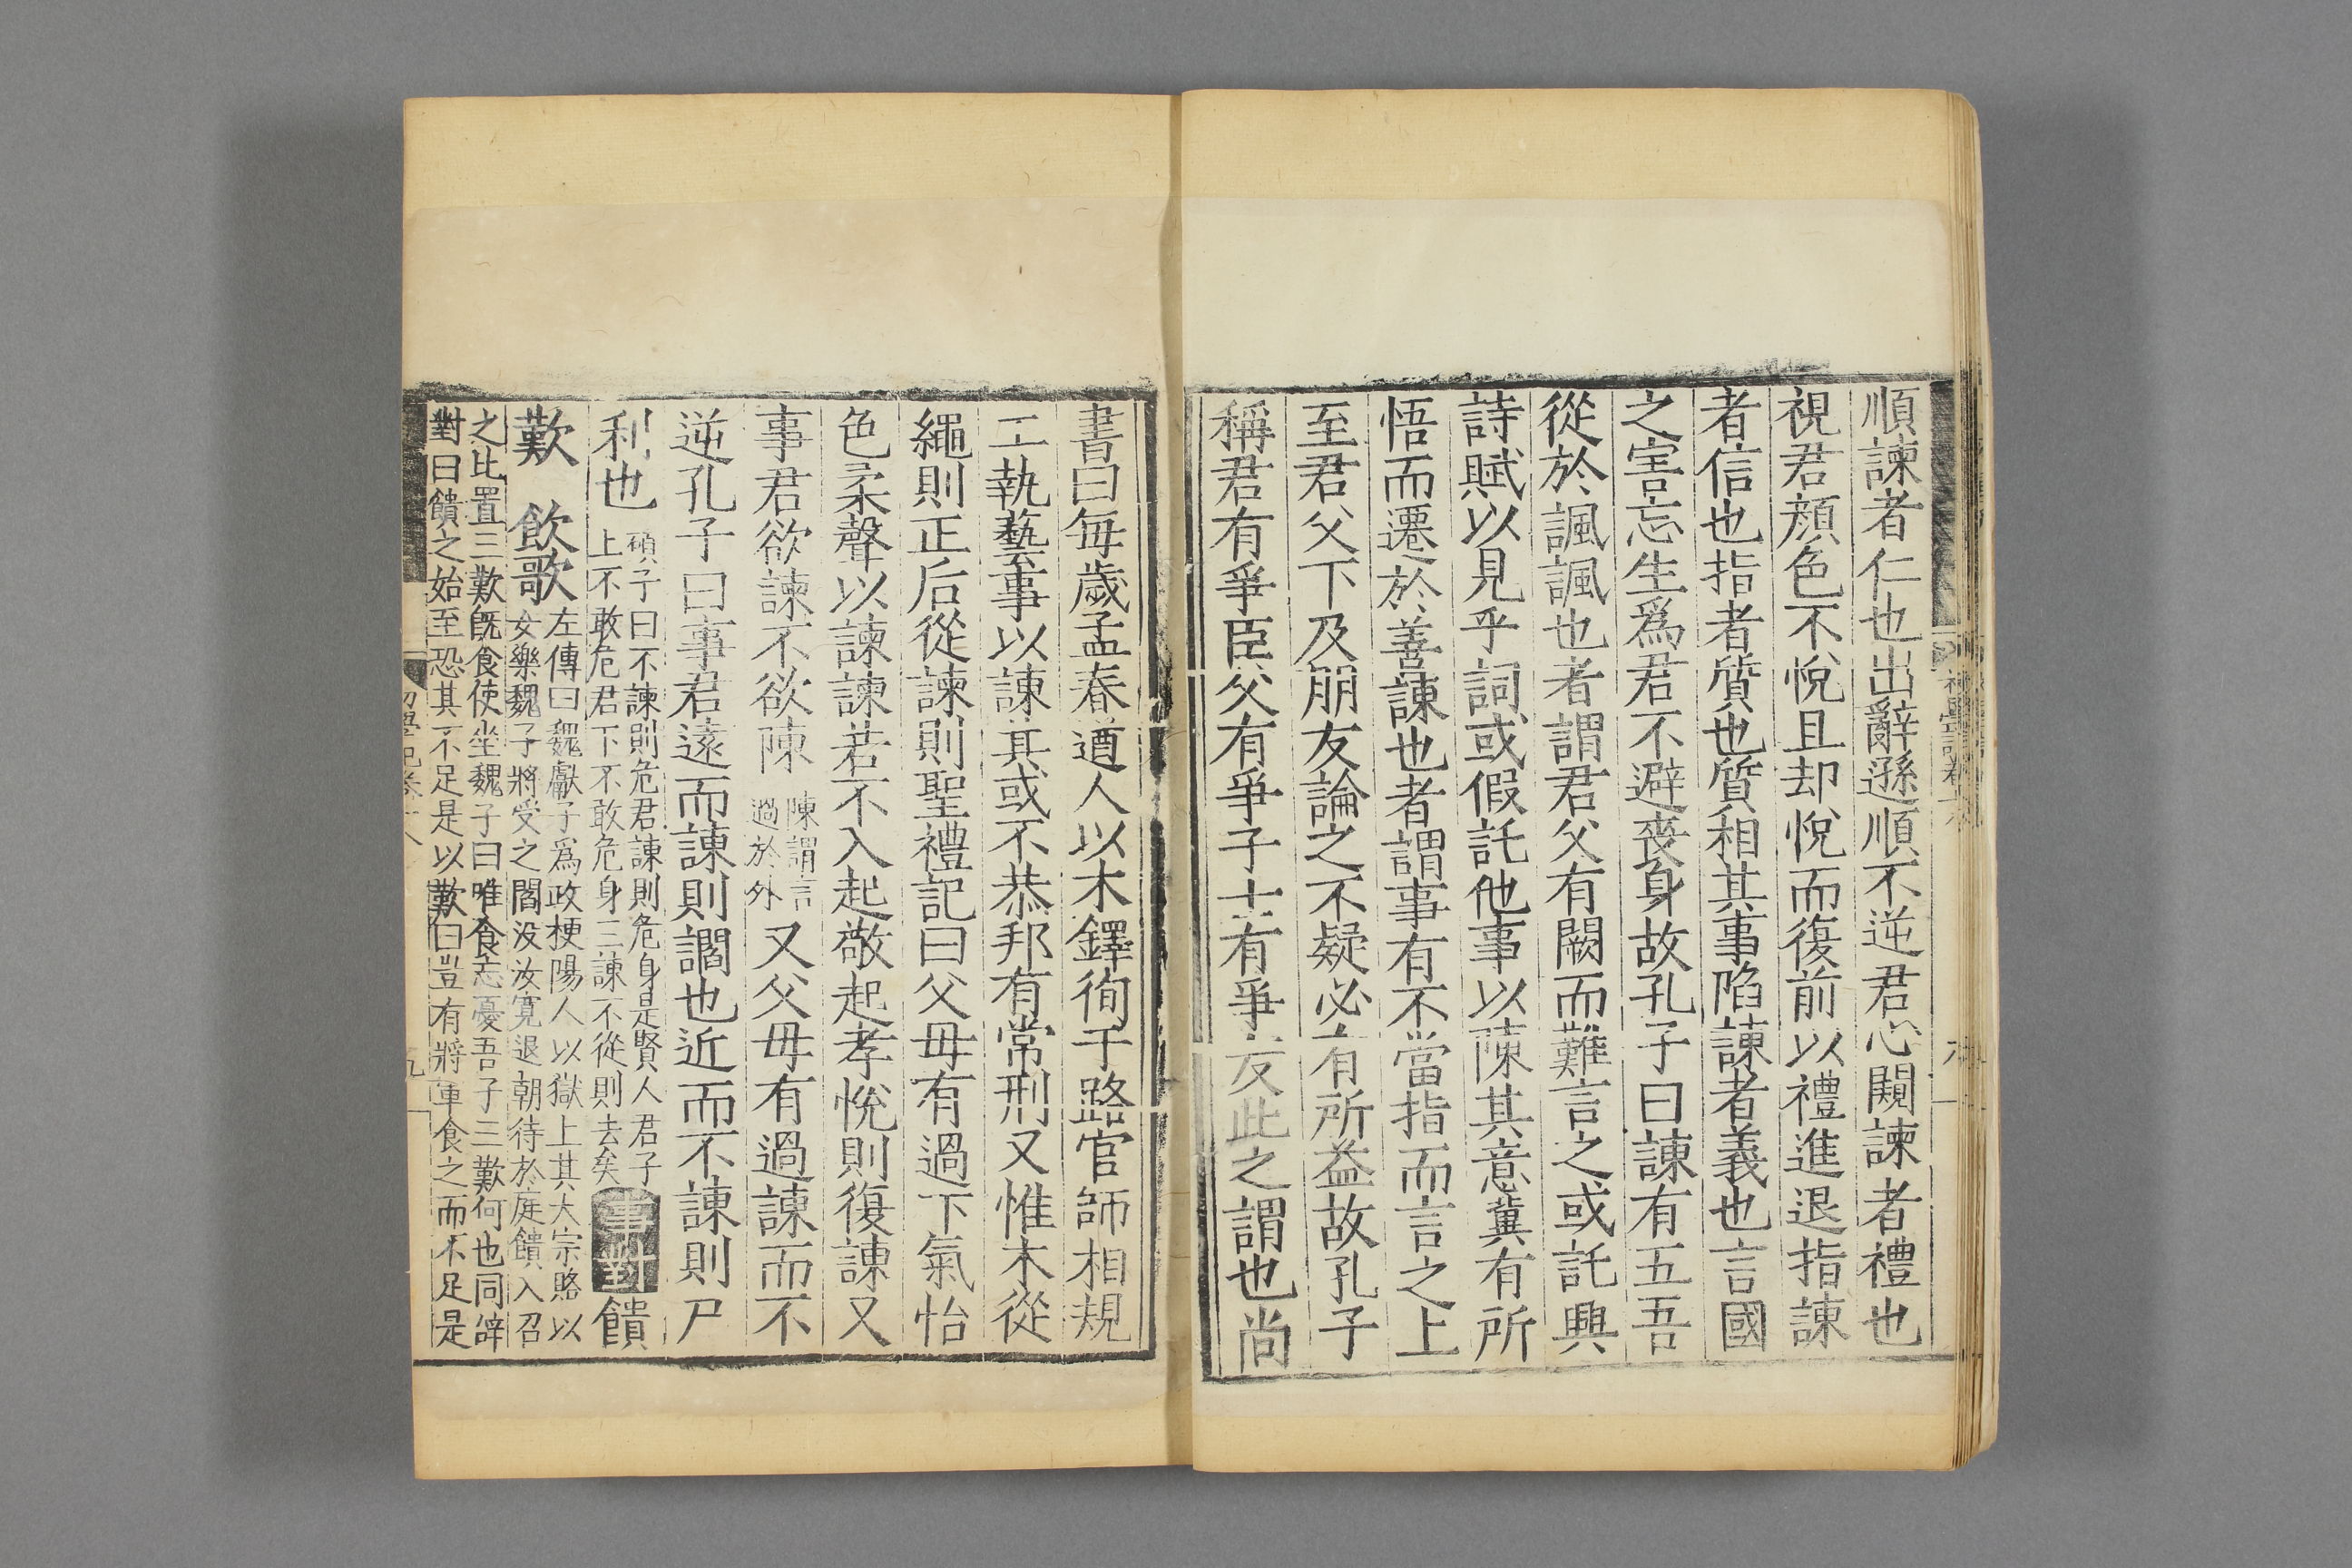 順諫者仁也出辭遜順不逆君心闚諫者禮也
視君顔色不悅且却悅而復前以禮進退指諫
者信也指者質也質相其事陷諫者義也言國
之害忘生爲君不避喪身故孔子曰諫有五吾
從於諷諷也者謂君父有闕而難言之或託興
詩賦以見乎詞或假託他事以陳其意冀有所
悟而遷於善諫也者謂事有不當指而言之上
至君父下及朋友論之不疑必有所益故孔子
稱君有爭臣父有爭子士有爭友此之謂也尚
書曰每歲孟春遒人以木鐸徇于路官師相規
工執藝事以諫其或不恭邦有常刑又惟木從
繩則正后從諫則聖禮記曰父母有過下氣怡
色柔聲以諫諫若不入起敬起孝悅則復諫又
事君欲諫不欲陳陳謂言過於外又父母有過諫而不
逆孔子曰事君遠而諫則讇也近而不諫則尸
利也碩子曰不諫則危君諫則危身是賢人君子上不敢危君下不敢危身三諫不從則去矣事對饋
歎 飲歌左傳曰魏獻子爲政梗陽人以獄上其大宗賂以女樂魏子將受之閻没汝寬退朝待於庭饋入召
之比置三歎旣食使坐魏子曰唯食忘憂吾子三歎何也同辞
對曰饋之始至恐其不足是以歎曰豈有將軍食之而不足是
初學記卷十八
九